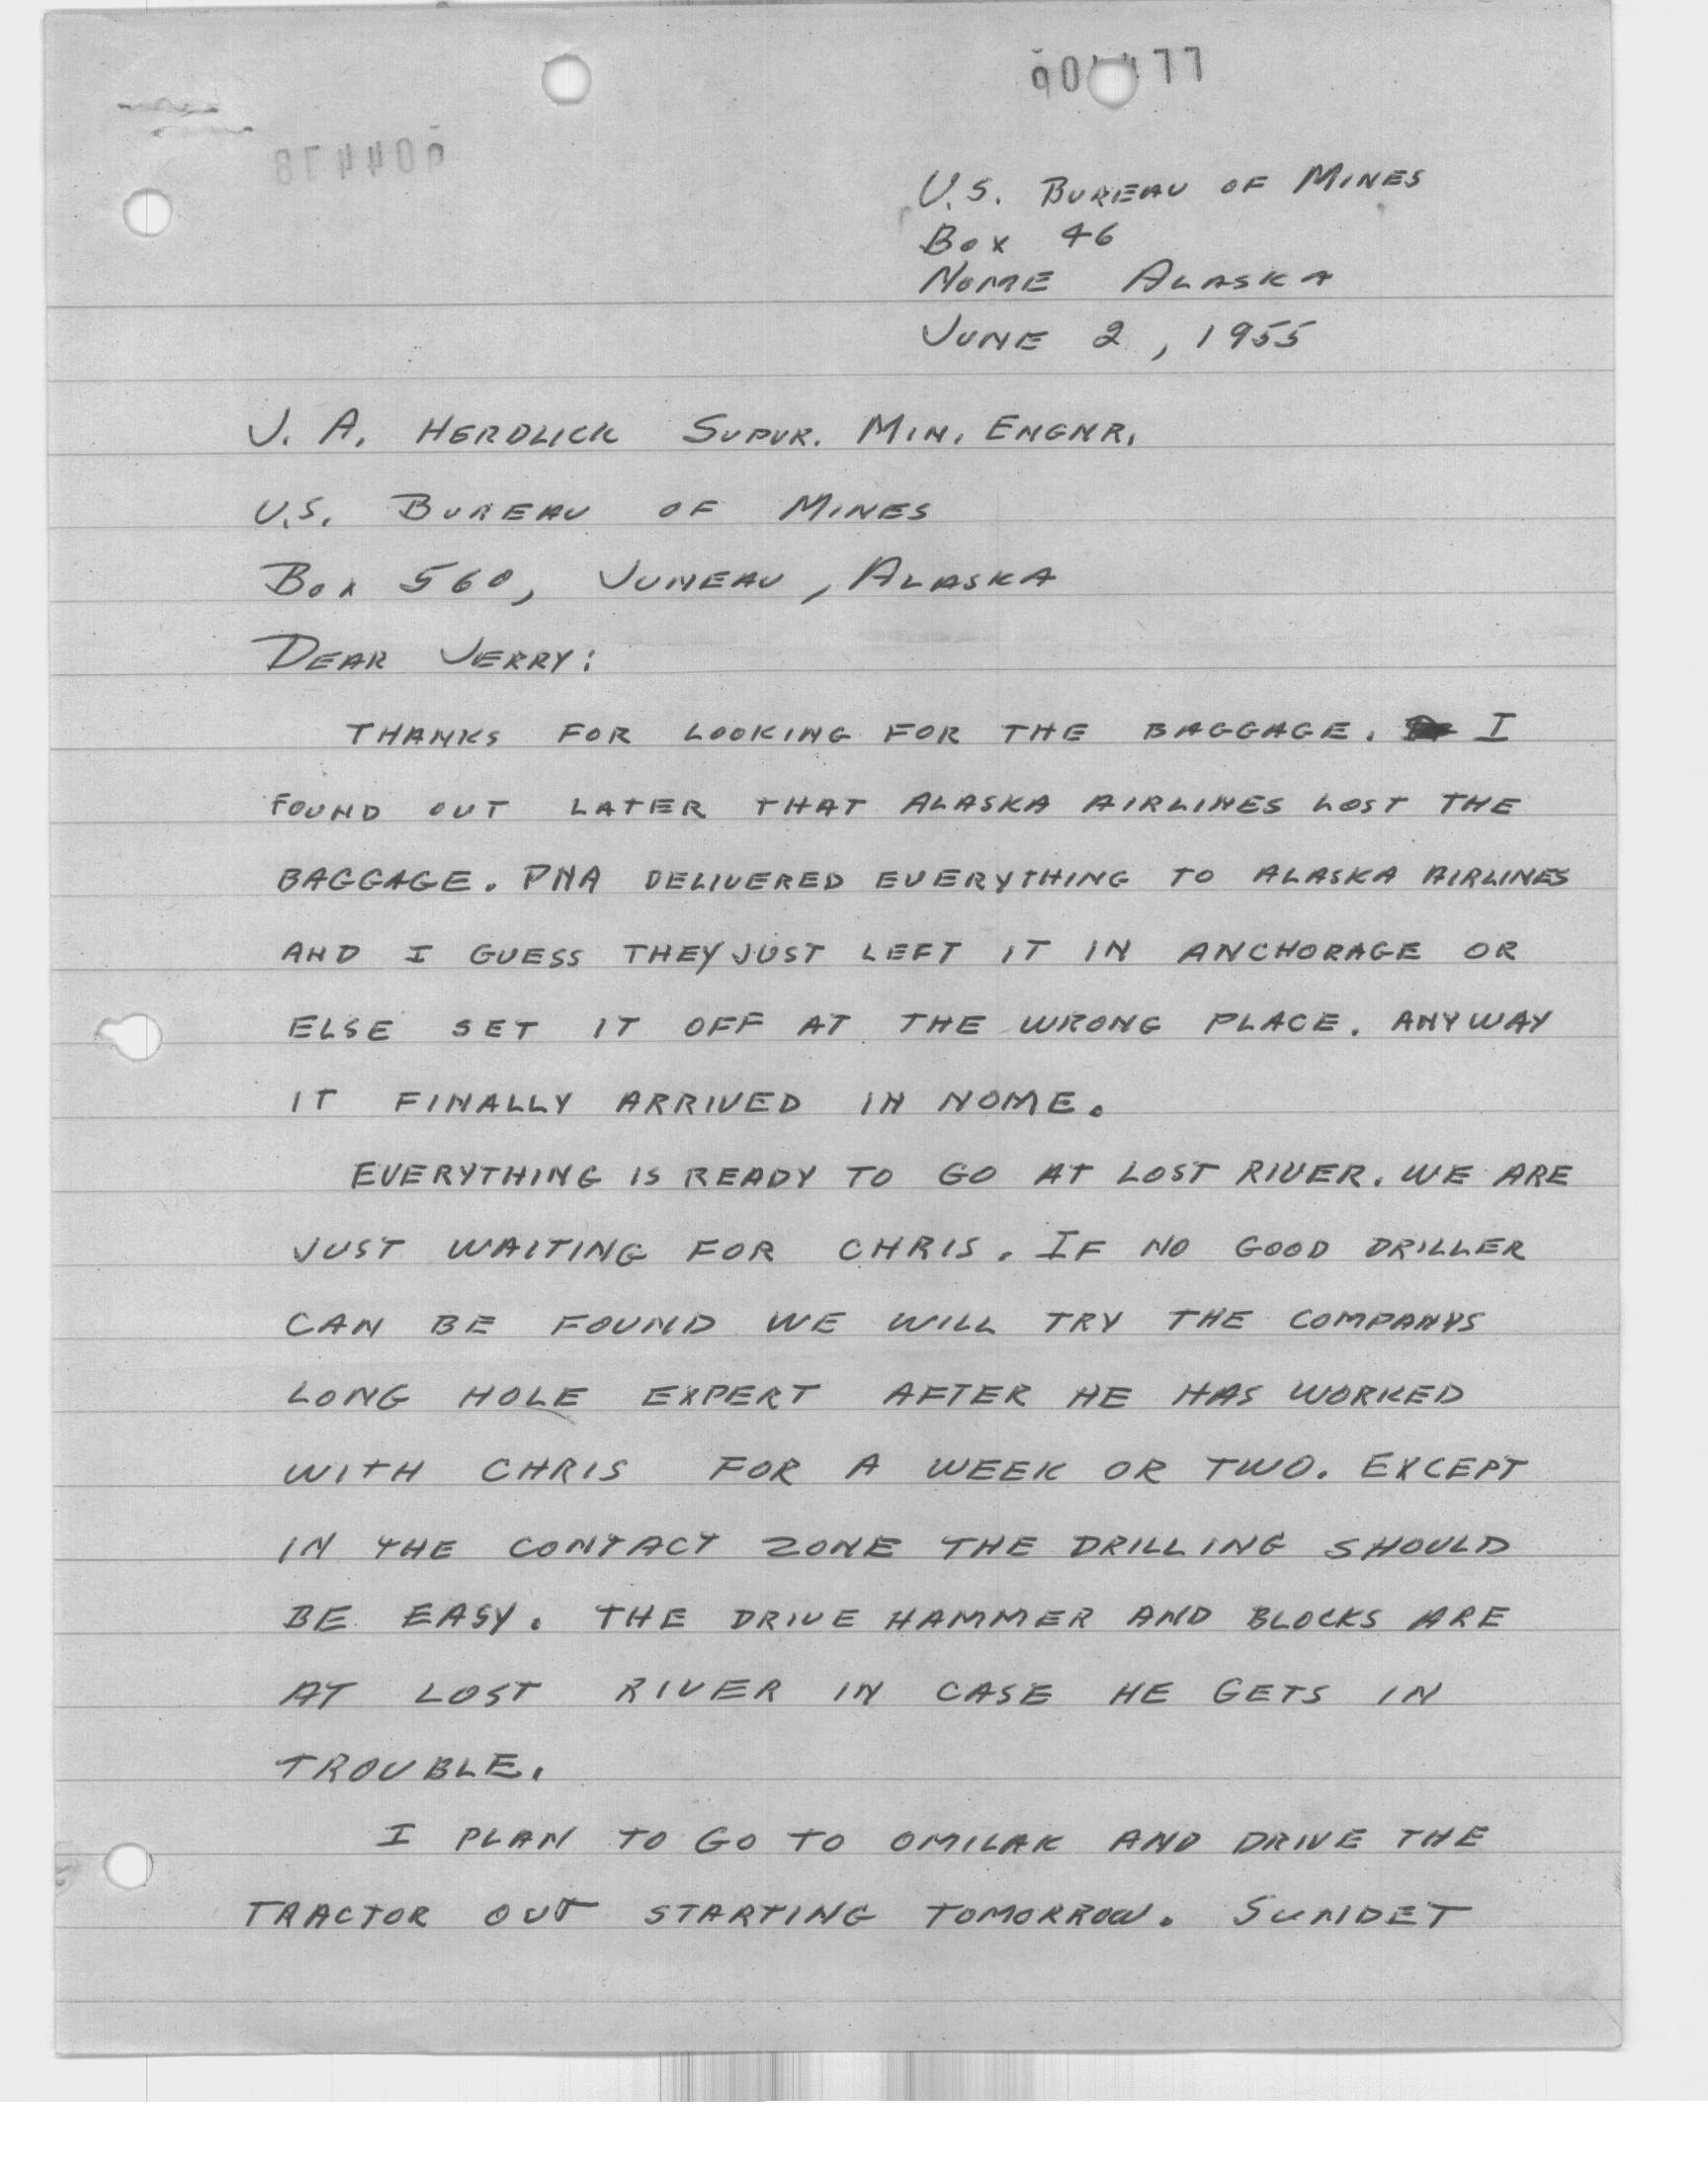 77
U.S. BUREAU OF MINES
BOX 46
NOME ALASKA
JUNE 2, 1955
J. A. HERDLICK SUPVR. MIN. ENGNR.
U.S. BUREAU OF MINES
BOX 560, JUNEAU, ALASKA
DEAR JERRY:
THANKS FOR LOOKING FOR THE BAGGAGE. I
FOUND OUT LATER THAT ALASKA AIRLINES LOST THE
BAGGAGE. PNA DELIVERED EVERYTHING TO ALASKA AIRLINES
AND I GUESS THEY JUST LEFT IT IN ANCHORAGE OR
ELSE SET IT OFF AT THE WRONG PLACE. ANYWAY
IT FINALLY ARRIVED IN NOME.
EVERYTHING IS READY TO GO AT LOST RIVER. WE ARE
JUST WAITING FOR CHRIS. IF NO GOOD DRILLER
CAN BE FOUND WE WILL TRY THE COMPANYS
LONG HOLE EXPERT AFTER HE HAS WORKED
WITH CHRIS FOR A WEEK OR TWO. EXCEPT
IN THE CONTACT ZONE THE DRILLING SHOULD
BE EASY. THE DRIVE HAMMER AND BLOCKS ARE
AT LOST RIVER IN CASE HE GETS IN
TROUBLE.
I PLAN TO GO TO OMILAK AND DRIVE THE
TRACTOR OUT STARTING TOMORROW. SUNDET